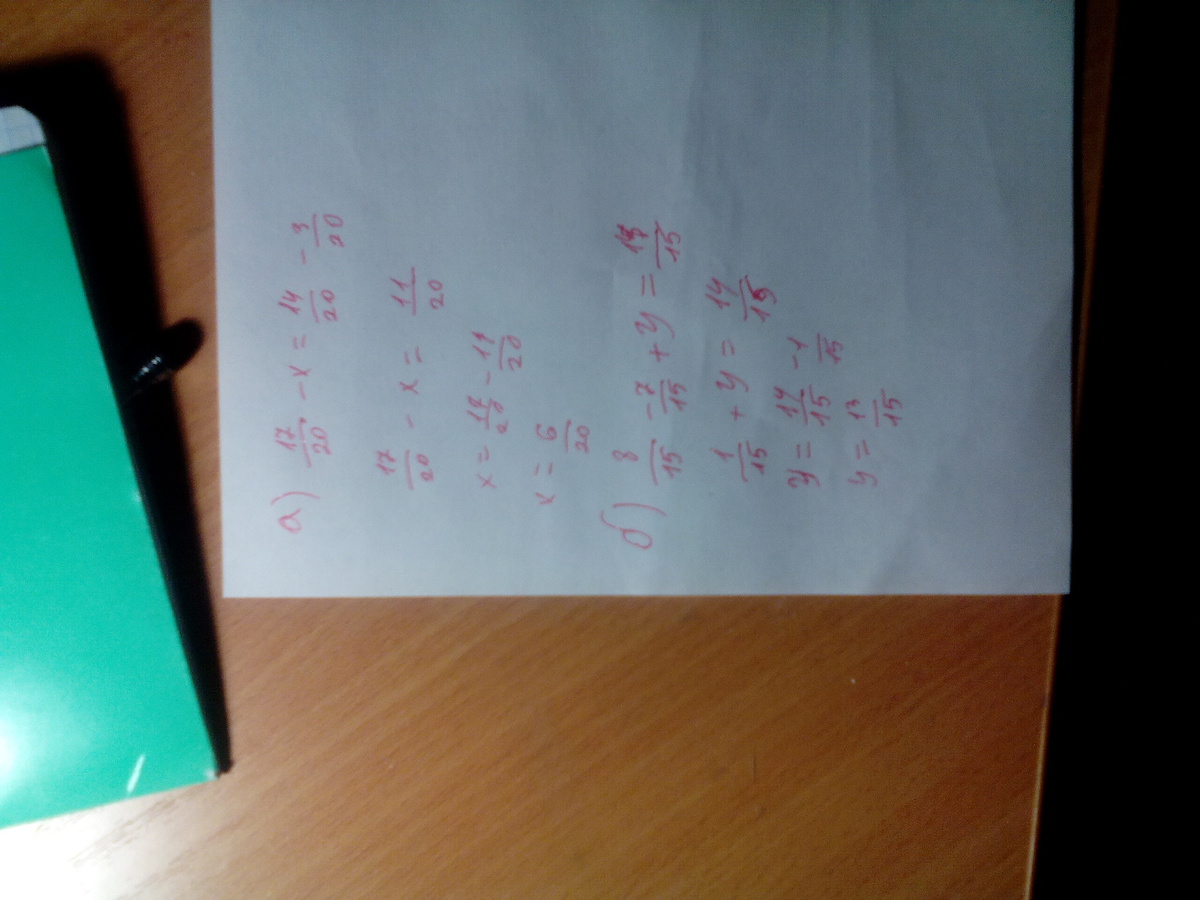 а) 17/20 - x = 14/20 - 3/20
17/20 - x = 11/20
x = 17/20 - 11/20
x = 6/20
б) 8/15 - 7/15 + y = /15
1/15 + y = 14/15
y = 14/15 - 1/15
y = 13/15